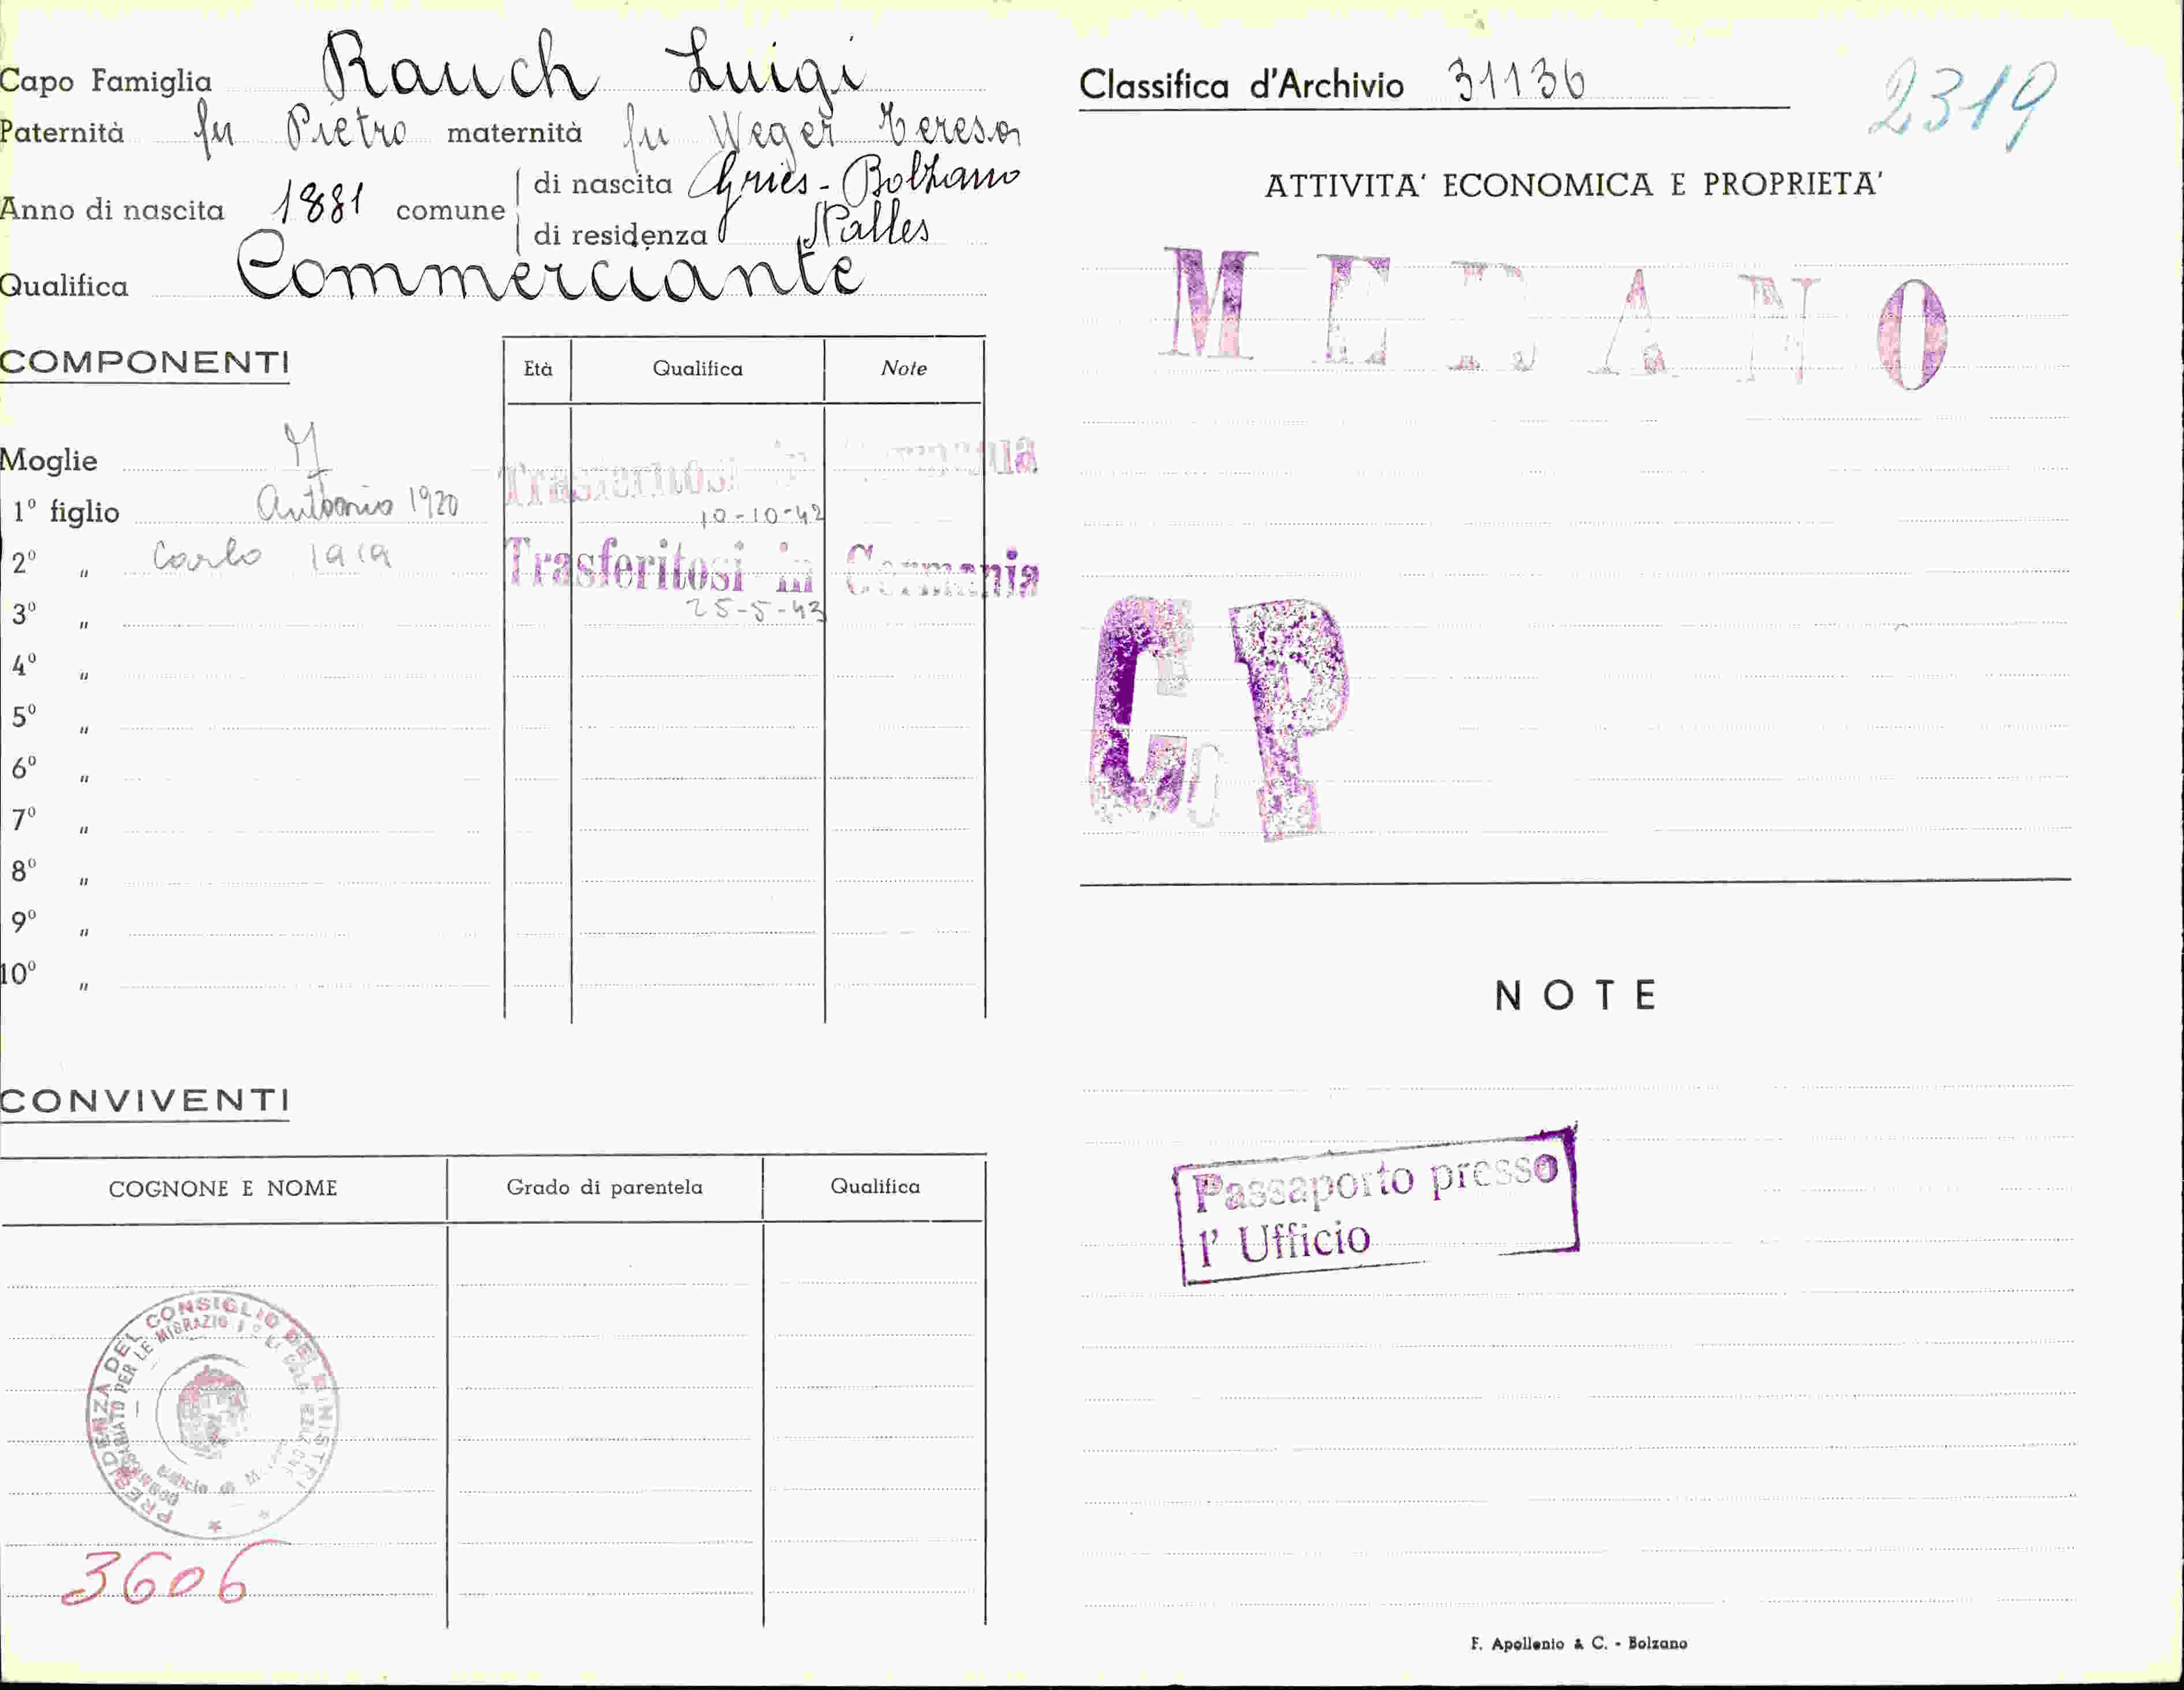 Capo Famiglia Rauch Luigi
Paternità fu Pietro maternità fu Weger Teresa
Anno di nascita 1881 comune di nascita Gries - Bolzano
di residenza Nalles
Qualifica Commerciante
COMPONENTI
Età Qualifica Note
Moglie M
Trasferitosi in Germania
1º figlio Antonio 1920
10-10-42
2º " Carlo 1919 Trasferitosi in Germania
25-5-43
3º "
4º "
5º "
6º "
7º "
8º "
9º "
10º "
CONVIVENTI
COGNONE E NOME Grado di parentela Qualifica
PRESIDENZA DEL CONSIGLIO DEI MINISTRI
PER LE MIGRAZIONI
3606
Classifica d'Archivio 31136
2319
ATTIVITA' ECONOMICA E PROPRIETA'
MERANO
CP
NOTE
Passaporto presso
l' Ufficio
F. Apollonio & C. - Bolzano